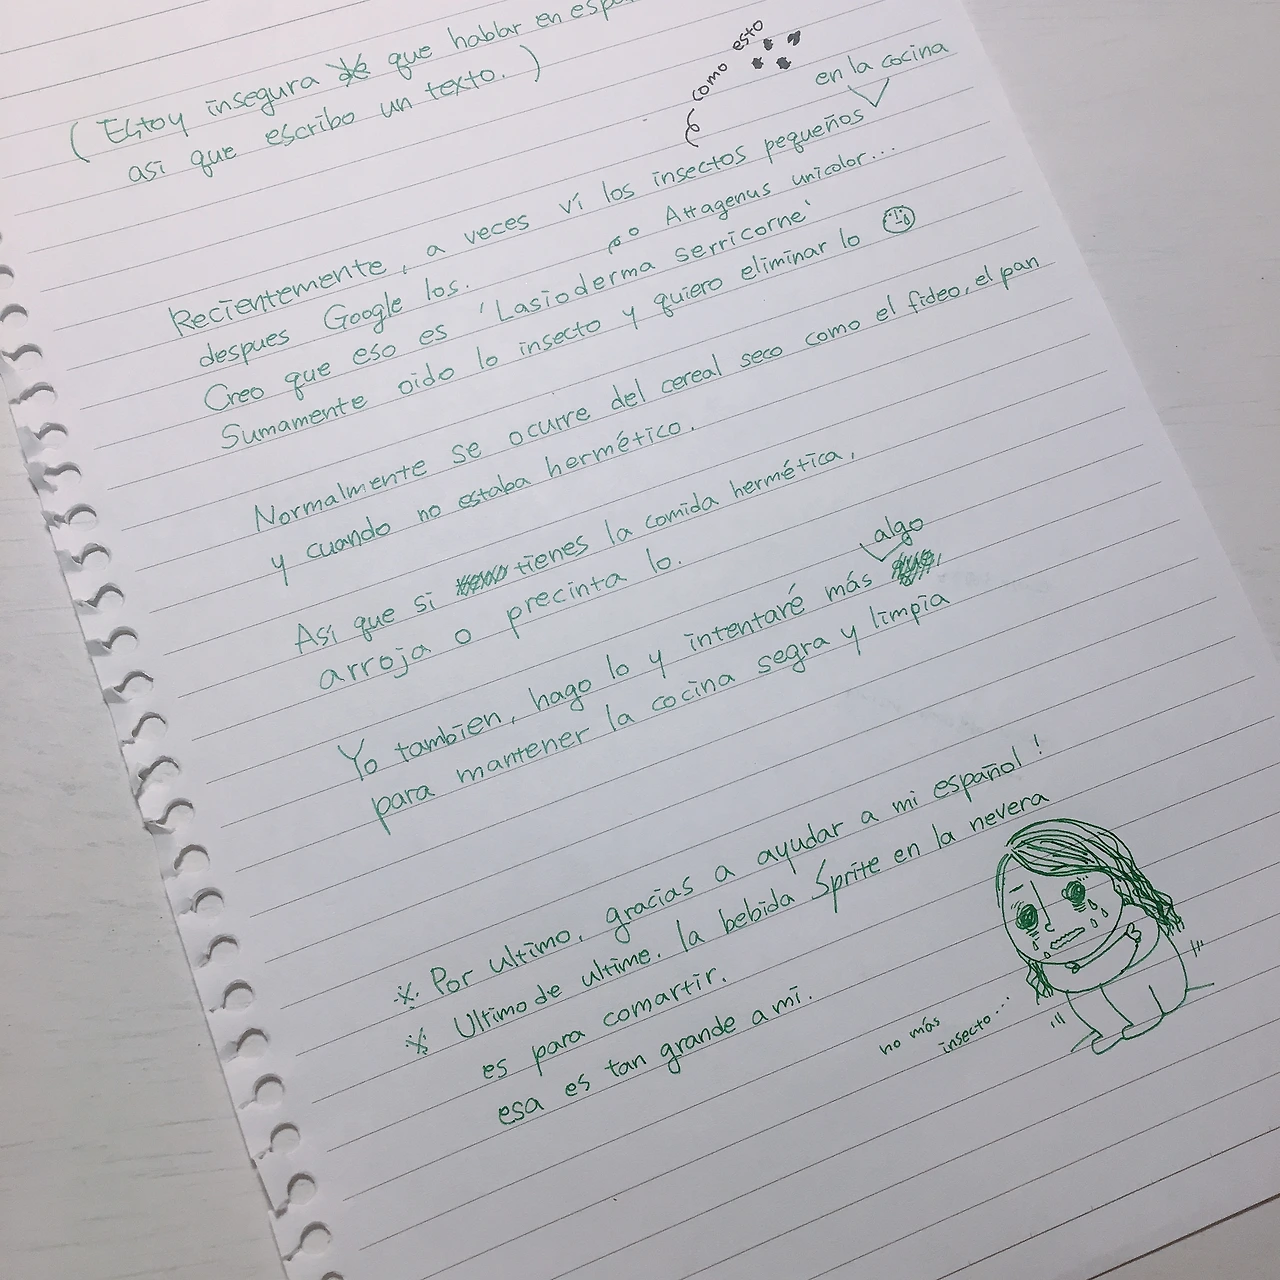 (Estoy insegura que hablar en
asi que escribo un texto.)
como esto
en la cocina
Recientemente, a veces ví los insectos pequeños
despues Google los.
o Attagenus unicolor...
Creo que eso es 'Lasioderma serricorne'
Sumamente oido lo insecto y quiero eliminar lo
Normalmente se ocurre del cereal seco como el fideo, el pan
y cuando no estaba hermético.
Así que si tienes la comida hermética,
arroja o precinta lo.
algo
Yo tambien, hago lo y intentaré más
para mantener la cocina segra y limpia
※ Por ultimo, gracias a ayudar a mi español!
※ Ultimo de ultime, la bebida Sprite en la nevera
es para comartir.
esa es tan grande a mi.
no más
insecto...